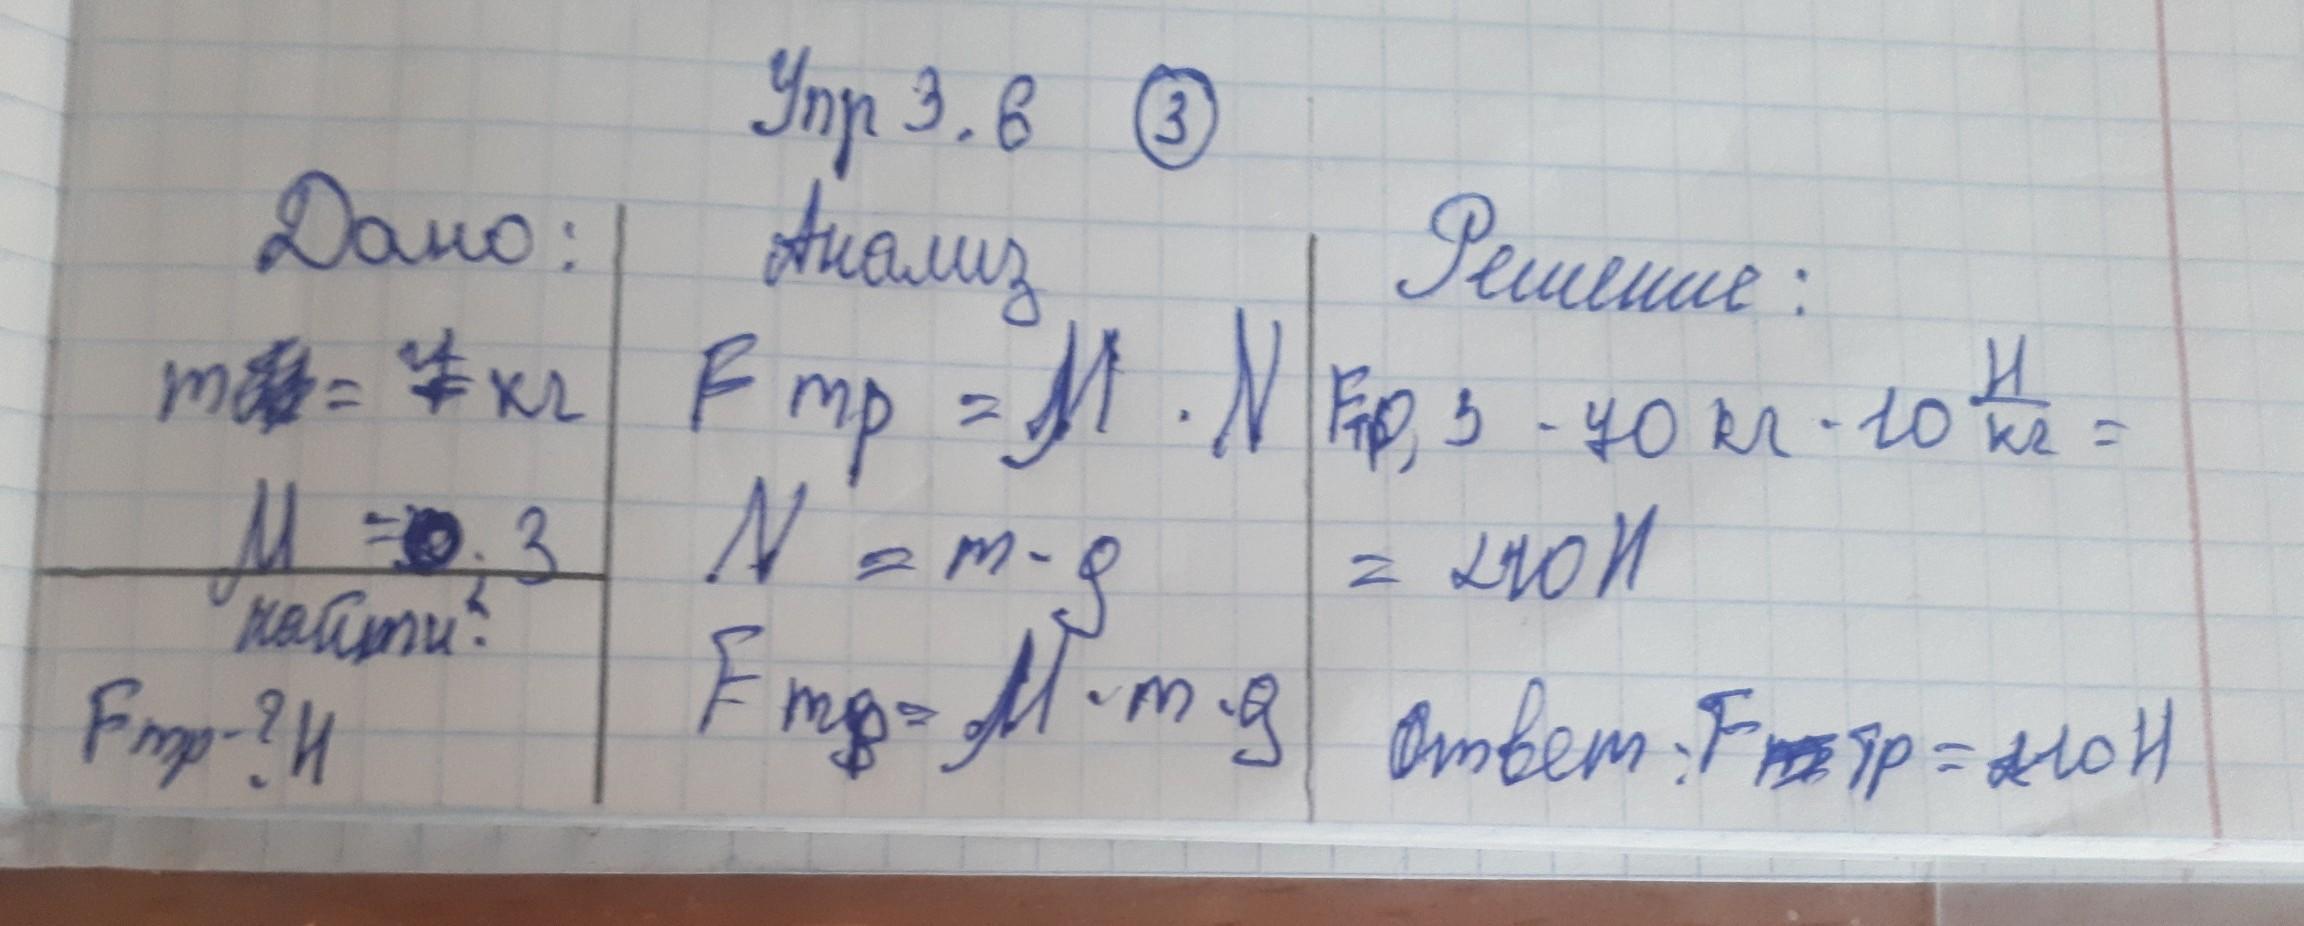 Упр 3.6 ③
Дано:
m = 7 кг
M = 0,3
найти:
Fтр-? Н
Анализ
Fтр = M · N
N = m · g
Fтр = M · m · g
Решение:
Fтр 0,3 · 70 кг · 10 Н/кг =
= 210 Н
Ответ: Fтр = 210 Н